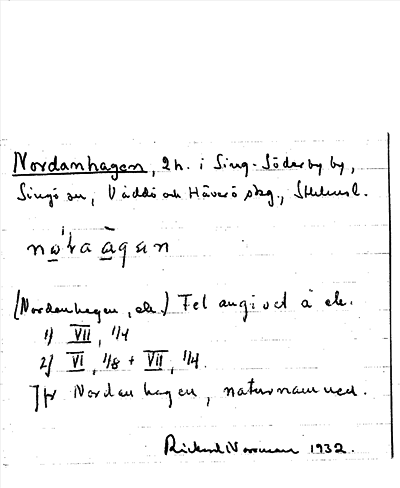 Nordanhagen, 2 h. i Sing-Söderby by,
Singö sn, Väddö och Häverö skg., Sthlmsl.
(Nordanhagen, ek.) Fel angivet å ek.
1) VII, 1/4
2) VI, 1/8 + VII, 1/4.
Jfr Nordanhagen, naturnamned.
Rickard Norrman 1932.